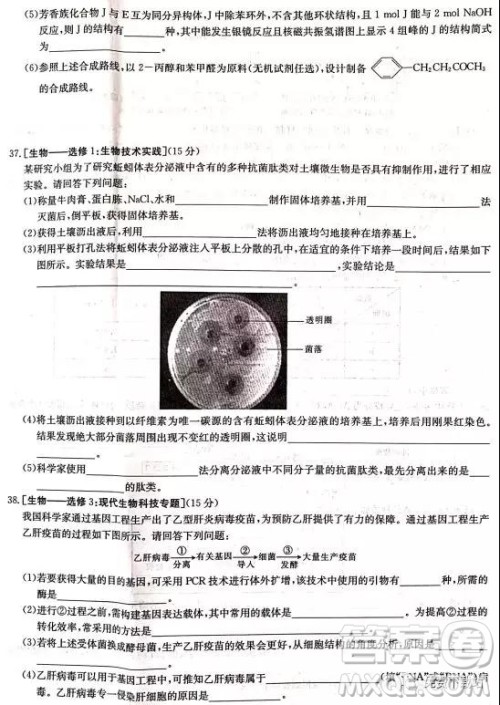 (5)芳香族化合物J与E互为同分异构体,J中除苯环外,不含其他环状结构,且1 mol J能与2 mol NaOH
反应,则J的结构有________种,其中能发生银镜反应且核磁共振氢谱图上显示4组峰的J的结构简式
为________________。
(6)参照上述合成路线,以2-丙醇和苯甲醛为原料(无机试剂任选),设计制备 —CH₂CH₂COCH₃
的合成路线。
37.[生物——选修1:生物技术实践](15分)
某研究小组为了研究蚯蚓体表分泌液中含有的多种抗菌肽类对土壤微生物是否具有抑制作用,进行了相应
实验。请回答下列问题:
(1)称量牛肉膏、蛋白胨、NaCl、水和________________制作固体培养基,并用________________法
灭菌后,倒平板,获得固体培养基。
(2)获得土壤沥出液后,利用________________法将沥出液均匀地接种在培养基上。
(3)利用平板打孔法将蚯蚓体表分泌液注入平板上分散的孔中,在适宜的条件下培养一段时间后,结果如下
图所示。实验结果是________________,实验结论是________________
________________。
透明圈
菌落
(4)将土壤沥出液接种到以纤维素为唯一碳源的含有蚯蚓体表分泌液的培养基上,培养后用刚果红染色。
结果发现绝大部分菌落周围出现不变红的透明圈,这说明________________
________________。
(5)科学家使用________________法分离分泌液中不同分子量的抗菌肽类,最先分离出来的是________
________________的肽类。
38.[生物——选修3:现代生物科技专题](15分)
我国科学家通过基因工程生产出了乙型肝炎病毒疫苗,为预防乙肝提供了有力的保障。通过基因工程生产
乙肝疫苗的过程如下图所示。请回答下列问题:
乙肝病毒 ①分离 有关基因 ②导入 细菌 ③发酵 大量生产疫苗
(1)若要获得大量的目的基因,可采用PCR技术进行体外扩增,该技术中使用的引物有________种,所需的
酶是________________。
(2)进行②过程之前,需构建基因表达载体,其中常用的载体是________________。为提高②过程的
转化效率,常采用的方法是________________
(3)若将上述受体菌换成酵母菌,生产乙肝疫苗的效果会更好,从细胞结构的角度分析,原因是________
________________
(4)乙肝疫苗可以用于基因工程中,可推知乙肝病毒属于________________
毒。乙肝病毒专一侵染肝细胞的原因是________________
答案卷